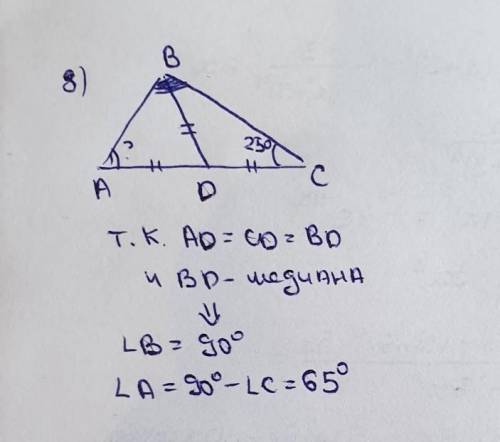 8)
B
?
25°
A
D
C
Т.К. AD = CD = BD
и BD - медиАНА
⇓
∠B = 90°
∠A = 90° - ∠C = 65°